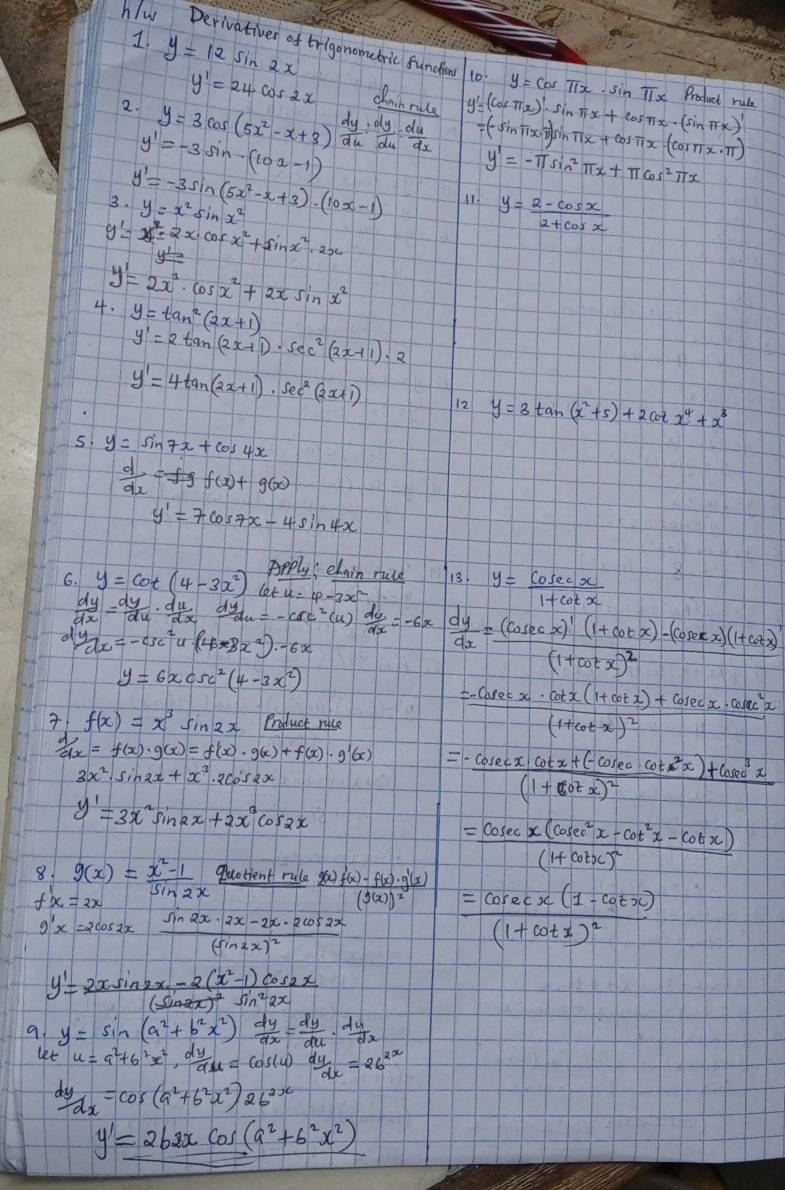 h/w Derivatives of trigonometric functions
1. y = 12 sin 2x
y' = 24 cos 2x
chain rule
2. y = 3 cos (5x² - x + 3) dy/du · dy/du = du/dx
y' = -3 sin · (10x - 1)
y' = -3 sin (5x² - x + 3) · (10x - 1)
3. y = x² sin x²
y' = x² = 2x · cos x² + sin x² · 2x
y' =
y' = 2x³ · cos x² + 2x sin x²
4. y = tan² (2x+1)
y' = 2 tan (2x+1) · sec² (2x+1) · 2
y' = 4 tan (2x+1) · sec² (2x+1)
5. y = sin 7x + cos 4x
d/dx = fg f(x) + g(x)
y' = 7 cos 7x - 4 sin 4x
6. y = cot (4 - 3x²) Apply; chain rule
let u = 4 - 3x²
dy/dx = dy/du · du/dx dy/du = -csc² (u) dy/dx = -6x
dy/dx = -csc² u (4 - 3x²) · -6x
y = 6x csc² (4 - 3x²)
7. f(x) = x³ sin 2x Product rule
d/dx = f(x) · g(x) = f'(x) · g(x) + f(x) · g'(x)
3x² · sin 2x + x³ · 2 cos 2x
y' = 3x² sin 2x + 2x³ cos 2x
8. g(x) = x² - 1 / sin 2x Quotient rule g(x) f'(x) - f(x) · g'(x) / (g(x))²
f'x = 2x
g'x = 2 cos 2x sin 2x · 2x - 2x · 2 cos 2x / (sin 2x)²
y' = 2x sin 2x - 2 (x² - 1) cos 2x / (sin 2x)² sin² 2x
9. y = sin (a² + b² x²) dy/dx = dy/du · dy/dx
let u = a² + b² x², dy/du = cos(u) dy/dx = 2b²x
dy/dx = cos (a² + b² x²) 2b²x
y' = 2b2x cos (a² + b² x²)
10. y = cos πx · sin πx Product rule
y' = (cos πx)' · sin πx + cos πx · (sin πx)'
= (-sin πx · π) sin πx + cos πx · (cos πx · π)
y' = -π sin² πx + π cos² πx
11. y = 2 - cos x / 2 + cos x
12 y = 3 tan (x² + 5) + 2 cot x⁴ + x³
13. y = cosec x / 1 + cot x
dy/dx = (cosec x)' (1 + cot x) - (cosec x) (1 + cot x)' / (1 + cot x)²
= -cosec x · cot x (1 + cot x) + cosec x · cosec² x / (1 + cot x)²
= -cosec x cot x + (-cosec · cot² x) + cosec³ x / (1 + cot x)²
= cosec x (cosec² x - cot² x - cot x) / (1 + cot x)²
= cosec x (1 - cot x) / (1 + cot x)²